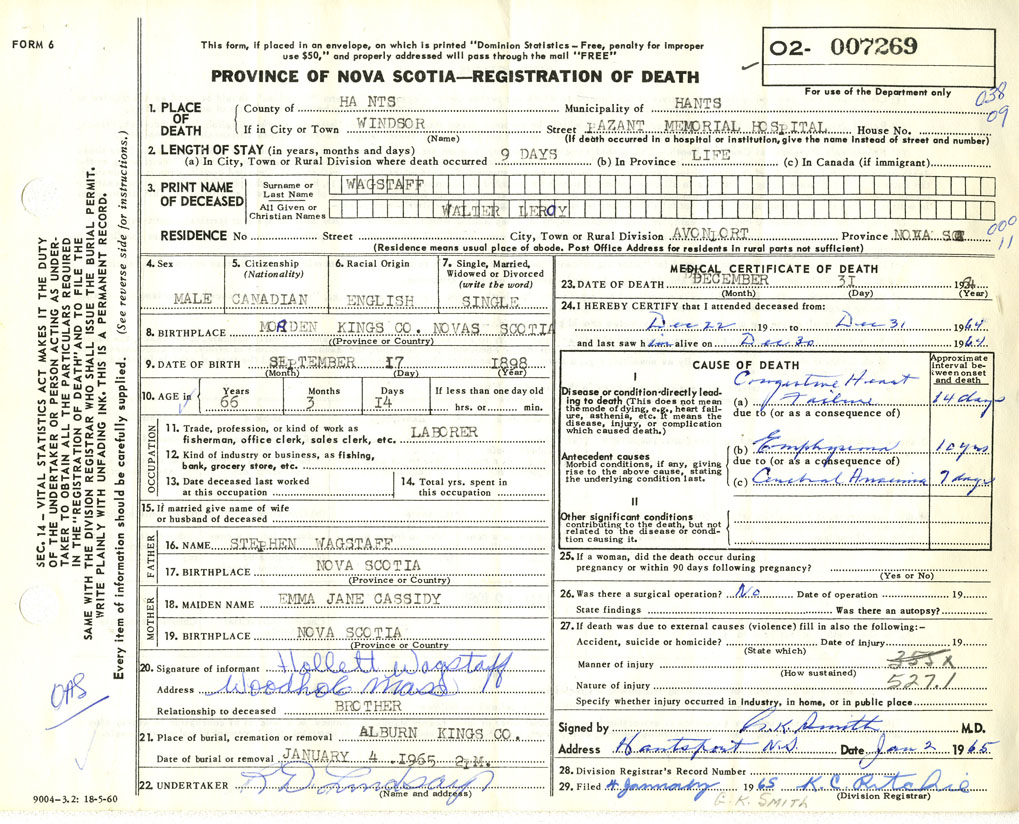 FORM 6
This form, if placed in an envelope, on which is printed "Dominion Statistics – Free, penalty for improper
use $50," and properly addressed will pass through the mail "FREE"
PROVINCE OF NOVA SCOTIA—REGISTRATION OF DEATH
02- 007269
For use of the Department only
038
09
1. PLACE OF DEATH
County of HA NTS Municipality of HANTS
If in City or Town WINDSOR Street PAZANT MEMORIAL HOSPITAL House No.
(Name) (If death occurred in a hospital or institution, give the name instead of street and number)
2. LENGTH OF STAY (in years, months and days)
(a) In City, Town or Rural Division where death occurred 9 DAYS (b) In Province LIFE (c) In Canada (if immigrant)
3. PRINT NAME OF DECEASED
Surname or Last Name WAGSTAFF
All Given or Christian Names WALTER LEROY
000
11
RESIDENCE No Street City, Town or Rural Division AVONPORT Province NOVA SC
(Residence means usual place of abode. Post Office Address for residents in rural parts not sufficient)
4. Sex
MALE
5. Citizenship
(Nationality)
CANADIAN
6. Racial Origin
ENGLISH
7. Single, Married,
Widowed or Divorced
(write the word)
SINGLE
8. BIRTHPLACE MORDEN KINGS CO. NOVAS SCOTIA
(Province or Country)
9. DATE OF BIRTH SEPTEMBER 17 1898
(Month) (Day) (Year)
10. AGE in
Years Months Days If less than one day old
66 3 14 hrs. or min.
OCCUPATION
11. Trade, profession, or kind of work as
fisherman, office clerk, sales clerk, etc. LABORER
12. Kind of industry or business, as fishing,
bank, grocery store, etc.
13. Date deceased last worked
at this occupation
14. Total yrs. spent in
this occupation
15. If married give name of wife
or husband of deceased
FATHER
16. NAME STEPHEN WAGSTAFF
17. BIRTHPLACE NOVA SCOTIA
(Province or Country)
MOTHER
18. MAIDEN NAME EMMA JANE CASSIDY
19. BIRTHPLACE NOVA SCOTIA
(Province or Country
20. Signature of informant Hollett Wagstaff
Address Woodhol Mass
Relationship to deceased BROTHER
21. Place of burial, cremation or removal ALBURN KINGS CO.
Date of burial or removal JANUARY 4 .1965 2P.M.
22. UNDERTAKER K D Lindsay
(Name and address)
MEDICAL CERTIFICATE OF DEATH
23. DATE OF DEATH DECEMBER 31 19
(Month) (Day) (Year)
24. I HEREBY CERTIFY that I attended deceased from:
Dec 22 19 to Dec 31 1964
and last saw him alive on Dec 30 1964
CAUSE OF DEATH
Approximate
interval be-
tween onset
and death
I
Disease or condition directly lead-
ing to death (This does not mean
the mode of dying, e.g., heart fail-
ure, asthenia, etc. It means the
disease, injury, or complication
which caused death.)
Congestive Heart
(a) Failure 14 days
due to (or as a consequence of)
Antecedent causes
Morbid conditions, if any, giving
rise to the above cause, stating
the underlying condition last.
(b) Emphysema 10 yrs
due to (or as a consequence of)
(c) Cerebral Anoxemia 7 days
II
Other significant conditions
contributing to the death, but not
related to the disease or condi-
tion causing it.
25. If a woman, did the death occur during
pregnancy or within 90 days following pregnancy?
(Yes or No)
26. Was there a surgical operation? No Date of operation 19
State findings Was there an autopsy?
27. If death was due to external causes (violence) fill in also the following:–
Accident, suicide or homicide? Date of injury 19
(State which)
Manner of injury 355 x
(How sustained)
Nature of injury 527.1
Specify whether injury occurred in Industry, in home, or in public place
Signed by G.K. Smith M.D.
Address Hantsport N.S. Date Jan 2 1965
28. Division Registrar's Record Number
29. Filed 4 January 1965 K. C. Ritchie
(Division Registrar)
G. K. SMITH
SEC. 14 – VITAL STATISTICS ACT MAKES IT THE DUTY
OF THE UNDERTAKER OR PERSON ACTING AS UNDER-
TAKER TO OBTAIN ALL THE PARTICULARS REQUIRED
IN THE "REGISTRATION OF DEATH" AND TO FILE THE
SAME WITH THE DIVISION REGISTRAR WHO SHALL ISSUE THE BURIAL PERMIT.
WRITE PLAINLY WITH UNFADING INK. THIS IS A PERMANENT RECORD.
Every item of information should be carefully supplied. (See reverse side for instructions.)
OAS
9004-3.2: 18-5-60